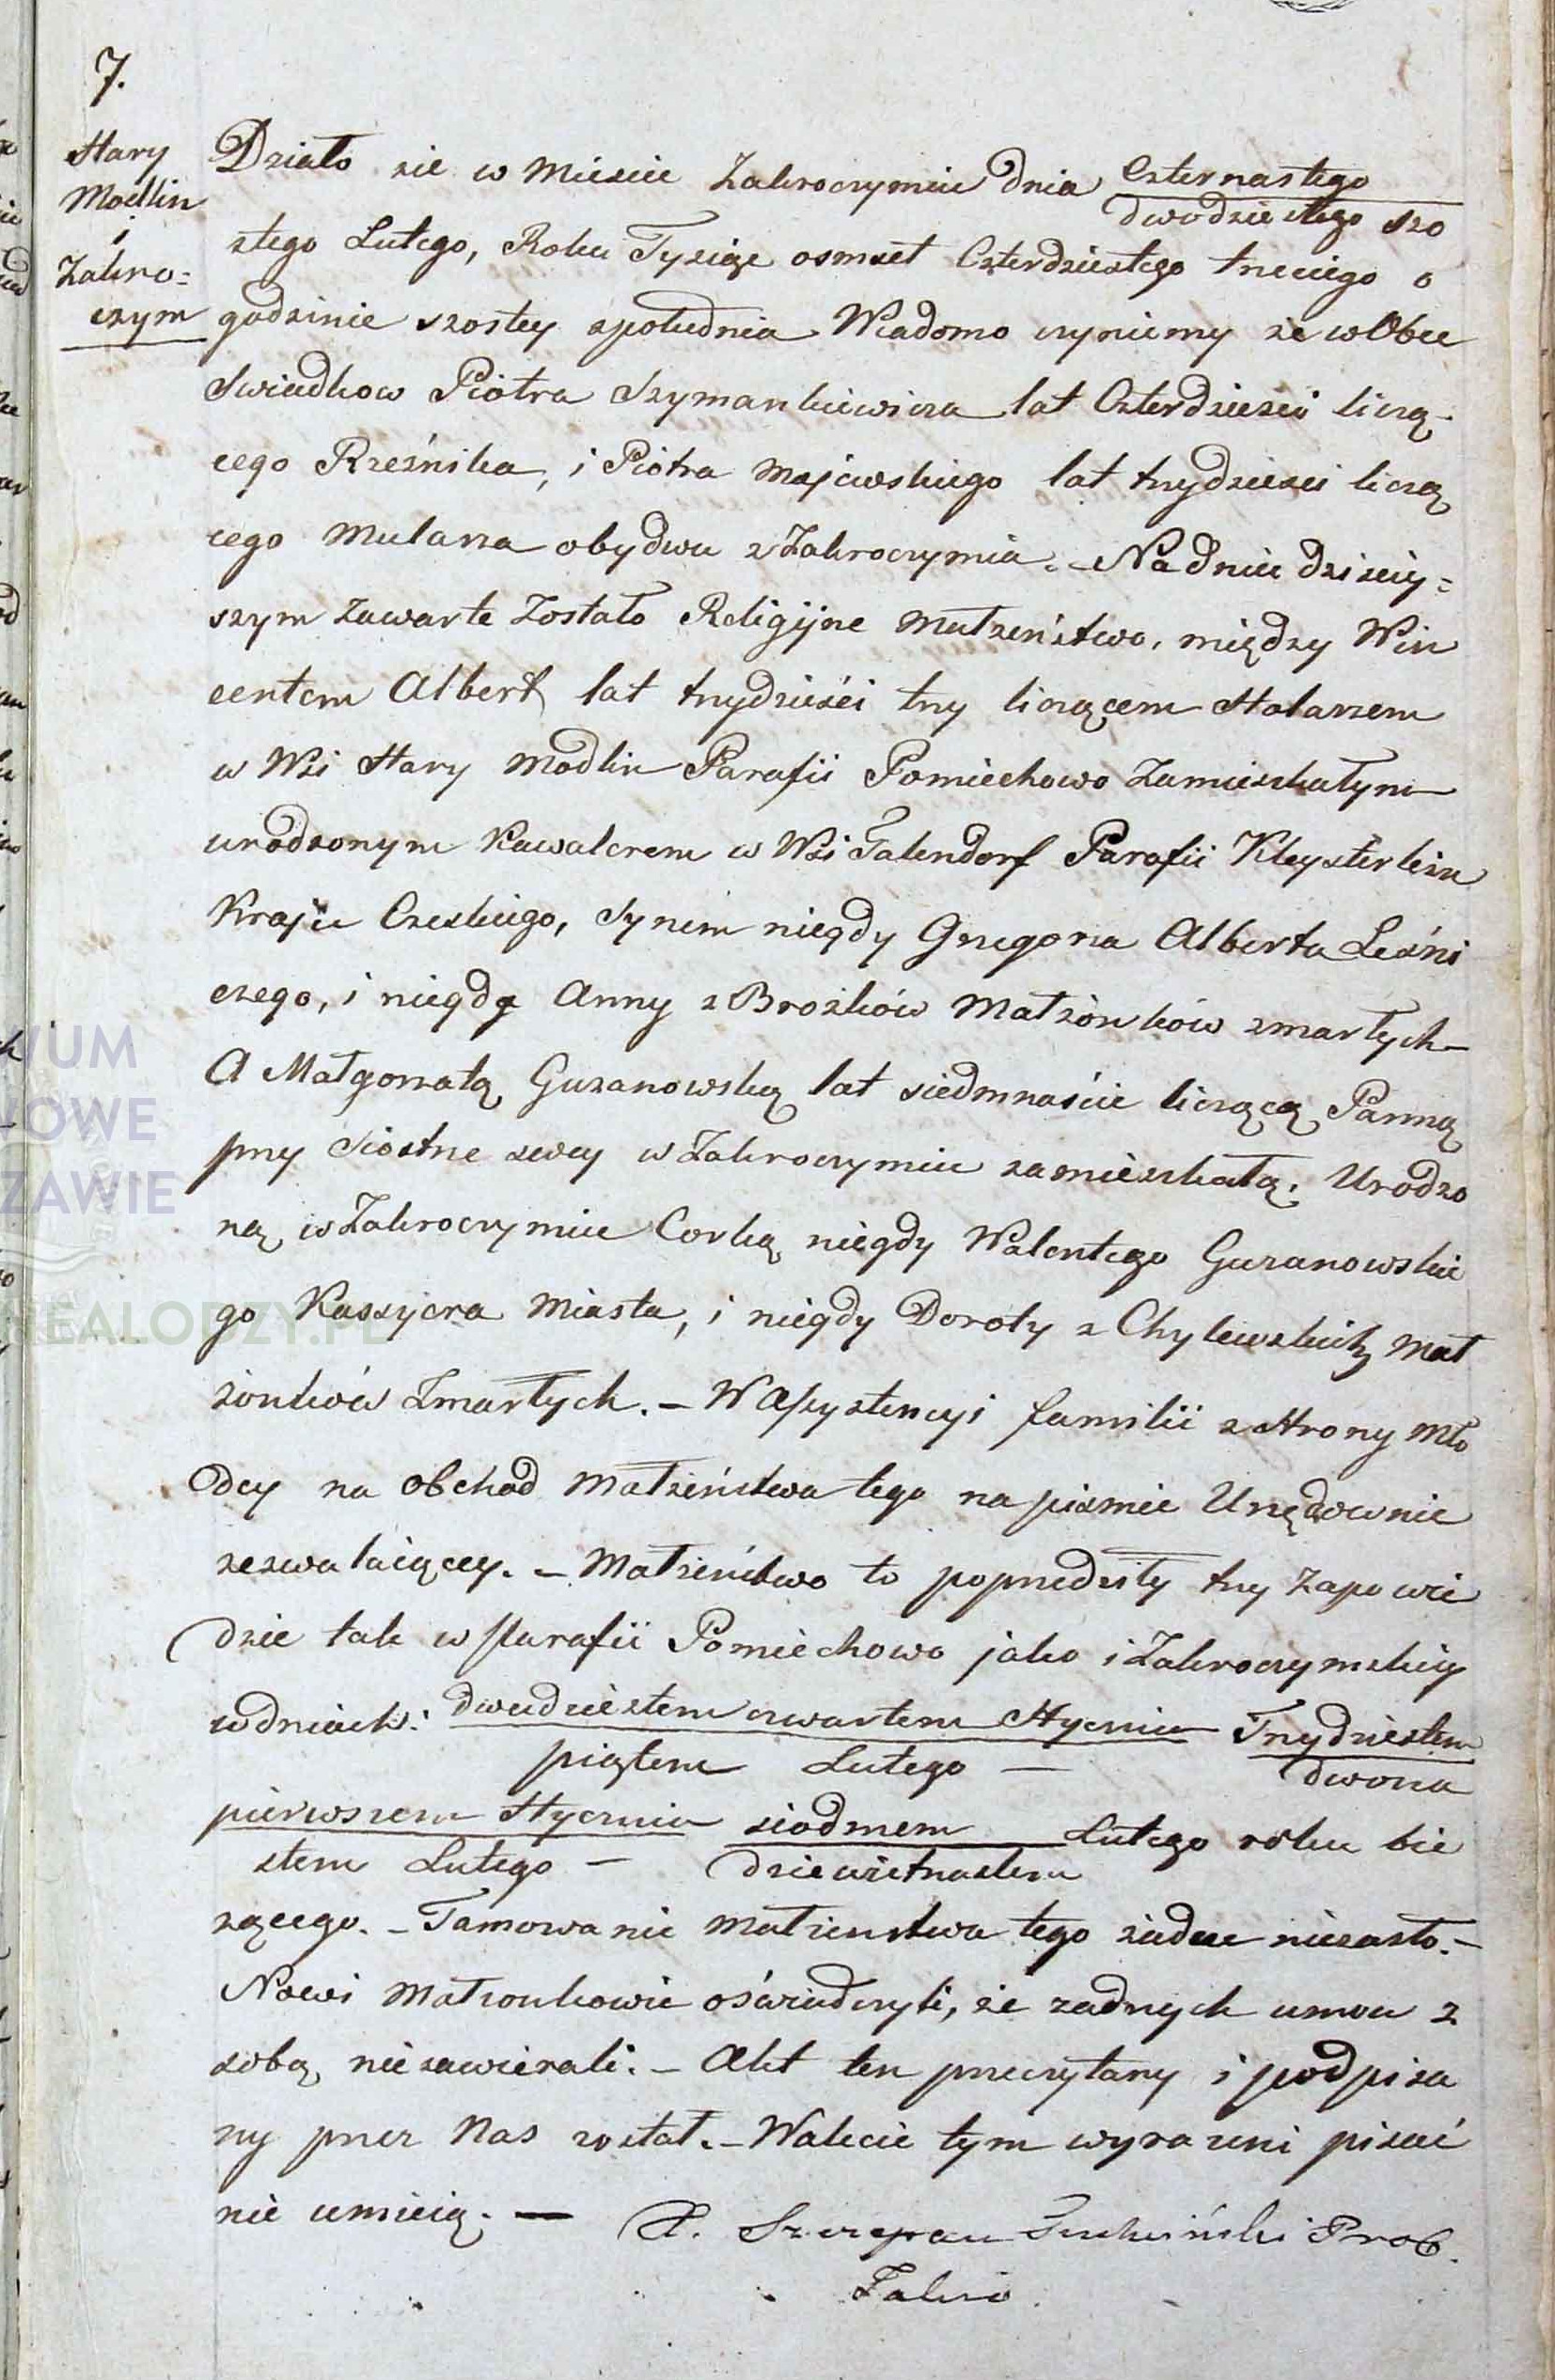 7.
Stary
Modlin
i
Zakro=
czym
Działo sie w Miescie Zakroczymiu dnia Czternastego
dwodziestego szo
stego Lutego, Roku Tysiąc osmset Czterdziestego trzeciego o
godzinie szostey zpołudnia Wiadomo czyniemy że w Obec
Swiadkow Piotra Szymankiewicza lat Czterdziesci liczą-
cego Rzeźnika, i Piotra Majewskiego lat trzydziesci liczą
cego Mularza obydwu z Zakroczymia. – Na dniu dzisiey=
szym Zawarte Zostało Religijne Małżeństwo, między Win
centem Albert lat trzydzieści trzy liczącem Stolarzem
w Wsi Stary Modlin Parafii Pomiechowo Zamieszkałym
urodzonym Kawalerem w Wsi Talendorf Parafii Kleysterlein
Kraju Czeskiego, Synem niegdy Grzegorza Alberta Leśni
czego, i niegdy Anny z Brozków Małżonków zmarłych –
A Małgorzatą Guzanowską lat siedmnaście liczącą Panną
przy Siostrze swey w Zakroczymiu zamieszkałą. Urodzo
ną w Zakroczymiu Corką niegdy Walentego Guzanowskie
go Kassyera Miasta, i niegdy Doroty z Chylewskich Mał
żonków Zmarłych. – W Assystencyi familii z Strony Mło
dey na obchod Małżeństwa tego na pismie Urzędownie
zezwalaiącey. – Małżeństwo to poprzedziły trzy Zapowie
dzie tak w Parafii Pomiechowo jako i Zakroczymskiey
w dniach: dwudziestem czwartem Stycznia Trzydziestem
piątem Lutego – dwona
pierwszem Stycznia siodmem Lutego roku bie
stem Lutego – dziewietnastem
żącego. – Tamowanie Małżenstwa tego żadne niezaszło. –
Nowi Małżonkowie oświadczyli, że żadnych umow z
sobą niezawierali. – Akt ten przeczytany i podpisa
ny przez Nas został. – W akcie tym wyrazeni pisać
nie umieią. – X. Szczepan Prob.
Zakro.
WUM
WOWE
ZAWIE
NEALODZY.PL